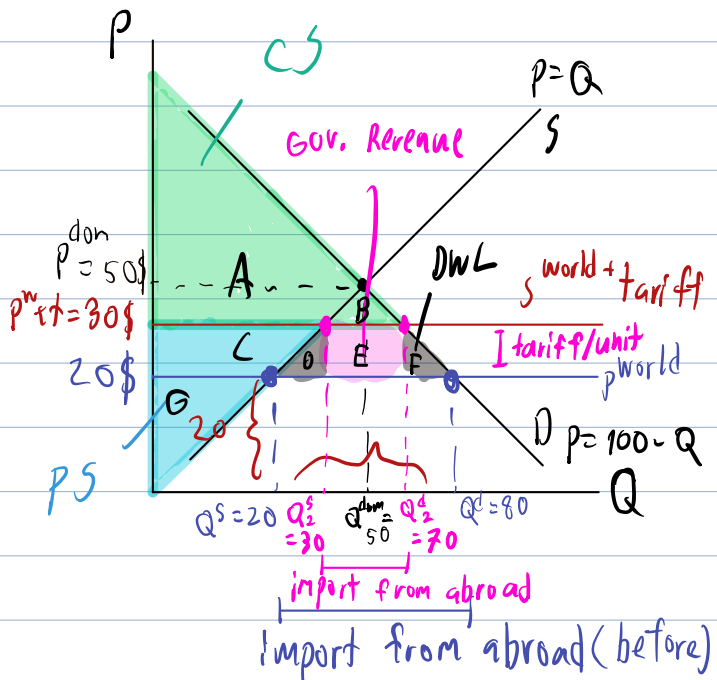 P
CS
P=Q
S
Gov. Revenue
P^don = 50$
A
B
DWL
S^world + tariff
P^w+t = 30$
C
D
E
F
I tariff/unit
20$
P^world
G
20
PS
D P=100-Q
Q
Q^s=20
Q₂^s =30
Q^dom = 50
Q₂^d =70
Q^d=80
import from abroad
import from abroad (before)